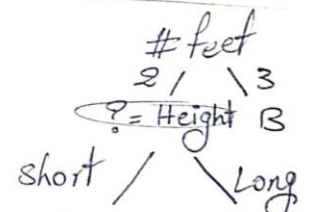 # feet
2 3
? = Height B
Short Long